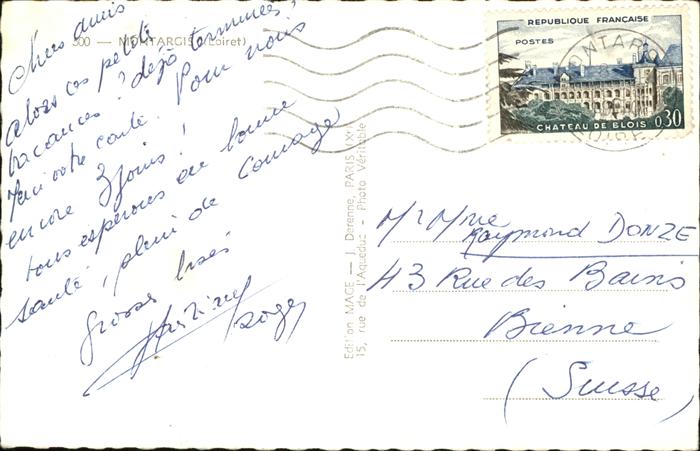 Chers amis
500 — MONTARGIS (Loiret)
alors ces petites
vacances? déjà terminées,
carte. Pour nous
encore 3 jours!
tous espérons en bonne
santé, plein de courage
grosses bises
Roger
Edition MAGE — J. Derenne, PARIS IXe
15, rue de l'Aqueduc - Photo Véritable
REPUBLIQUE FRANÇAISE
POSTES
CHATEAU DE BLOIS
0,30
MONTARGIS
LOIRET
Mr Mme
Raymond DONZE
43 Rue des Bains
Bienne
(Suisse)